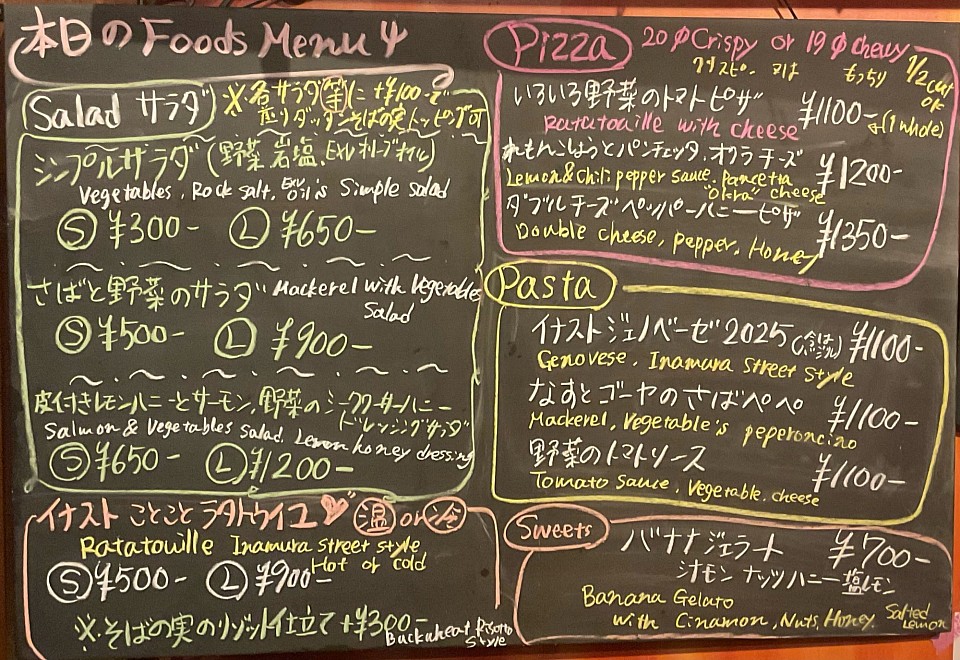 本日の Foods Menu
Salad サラダ
※各サラダ(筆)に +¥100-で
煎りダッタンそばの実トッピング可
シンプルサラダ(野菜、岩塩、EXVオリーブオイル)
Vegetables, Rock salt, EXV oil's Simple salad
Ⓢ ¥300- Ⓛ ¥650-
さばと野菜のサラダ Mackerel with Vegetables
Salad
Ⓢ ¥500- Ⓛ ¥900-
皮付きレモンハニーとサーモン、野菜のシークワーサーハニー
ドレッシングサラダ
Salmon & Vegetables Salad. Lemon honey dressing
Ⓢ ¥650- Ⓛ ¥1200-
イナスト ことこと ラタトゥイユ 温 or 冷
Ratatouille Inamura street style
Hot or cold
Ⓢ ¥500- Ⓛ ¥900-
※そばの実のリゾット仕立て +¥300-
Buckwheat Risotto
Style
Pizza 20φ Crispy or 19φ chewy
クリスピー 又は もっちり
1/2 cut
OK
いろいろ野菜のトマトピザ ¥1100-
(1 whole)
Ratatouille with cheese
れもんこしょうとパンチェッタ、オクラチーズ ¥1200-
Lemon & chili pepper sauce. Pancetta
"okra" cheese
ダブルチーズペッパーハニーピザ ¥1350-
Double cheese, pepper, Honey
Pasta
イナストジェノベーゼ2025(今はバジル) ¥1100-
Genovese, Inamura street style
なすとゴーヤのさばペペ ¥1100-
Mackerel, Vegetable's peperoncino
野菜のトマトソース ¥1100-
Tomato sauce, Vegetable. cheese
Sweets
バナナジェラート ¥700-
シナモン ナッツ ハニー 塩レモン
Banana Gelato
with Cinamon, Nuts, Honey, Salted
Lemon